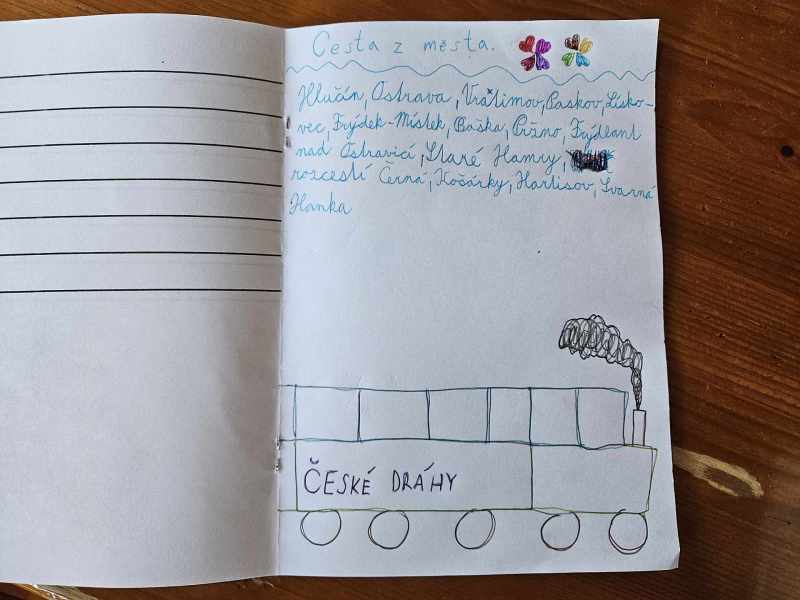 Cesta z města.
Hlučín, Ostrava, Vratimov, Paskov, Lísko-
vec, Frýdek-Místek, Baška, Pržno, Frýdlant
nad Ostravicí, Staré Hamry,
rozcestí Černá, Kočárky, Hartisov, Švarná
Hanka
ČESKÉ DRÁHY